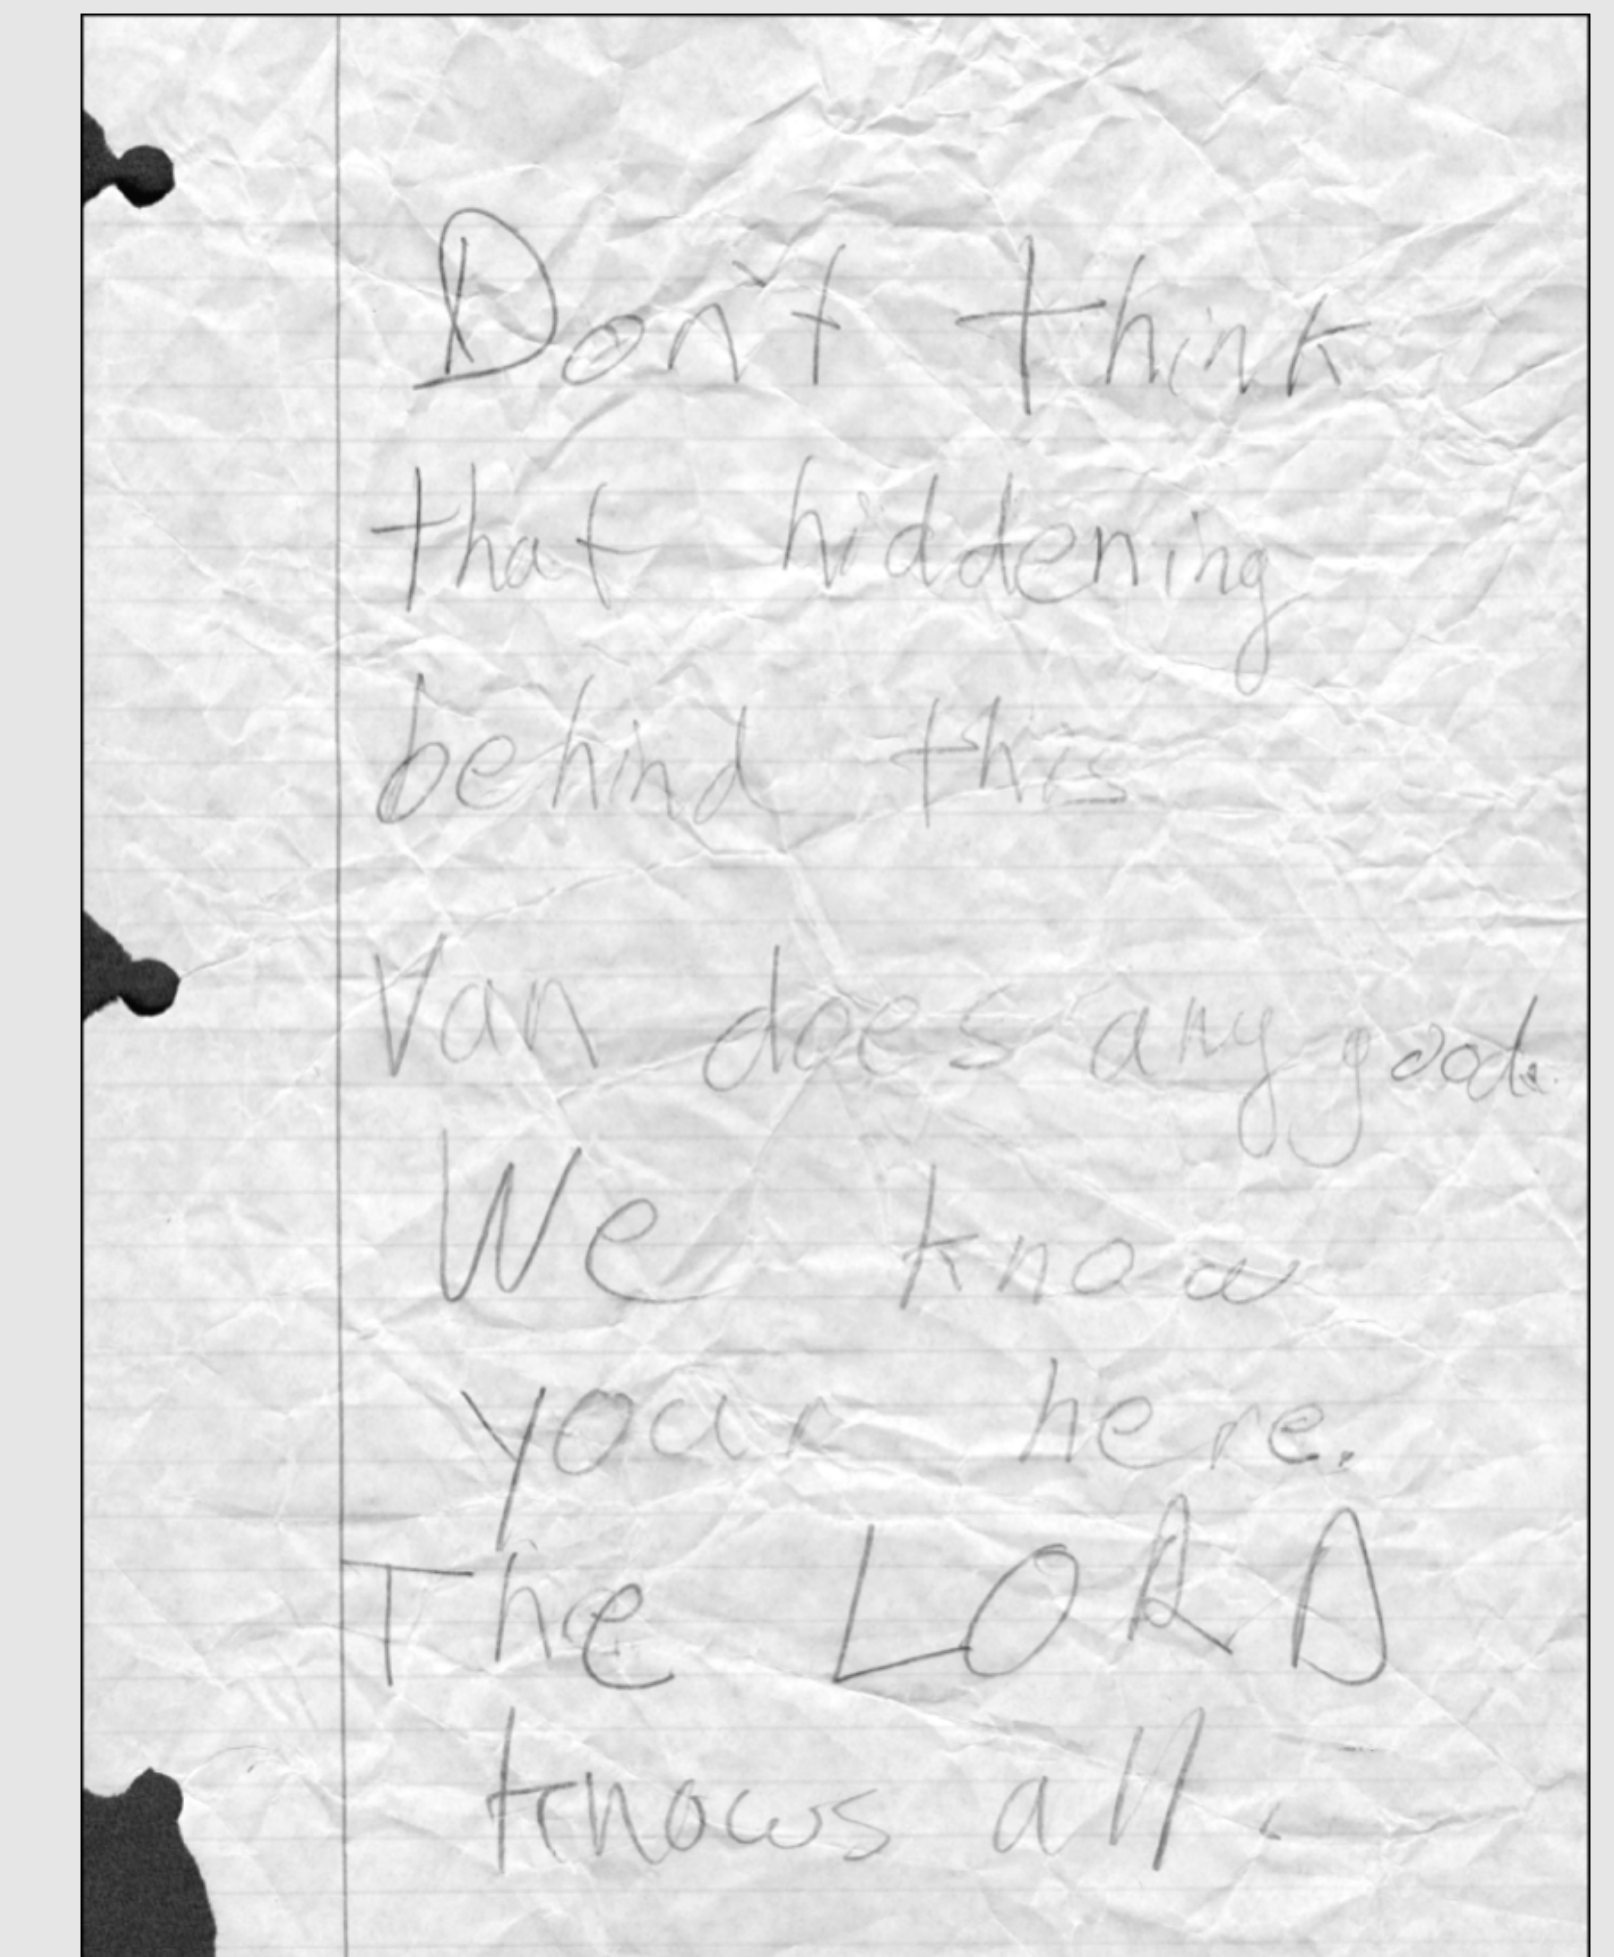 Don't think
that hiddening
behind this
Van does any good.
We know
your here.
The LORD
knows all.